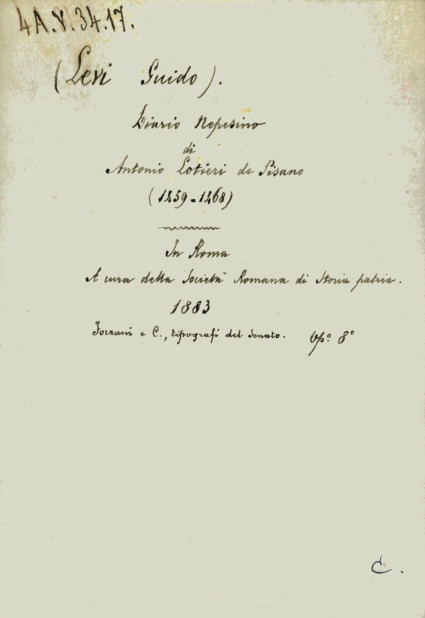 4A.V.34.17.
(Levi Guido).
Diario Nepesino
di
Antonio Lotieri de Pisano
(1459-1468)
In Roma
A cura della Società Romana di Storia patria.
1883
Forzani e C., tipografi del Senato. Op.º 8º
C.